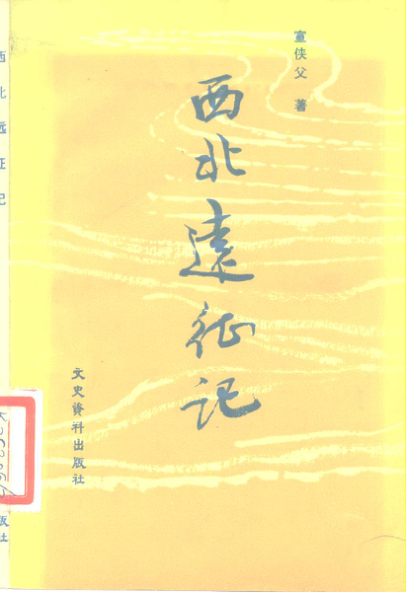 宣侠父 著
西北遠征记
文史资料出版社
西北远征记
版社